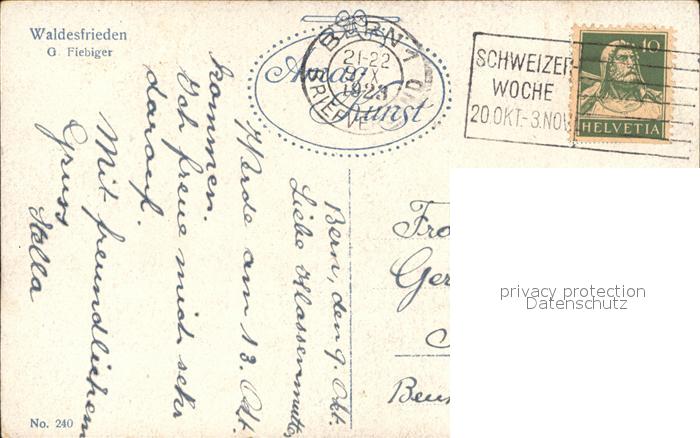 Waldesfrieden
G. Fiebiger
Amag
Kunst
BERN 1
21-22
9.X
1923
BRIEFVERSAND
SCHWEIZER-
WOCHE
20.OKT-3.NOV
10
HELVETIA
Bern, den 9. Okt.
Liebe Klassenmutter
Werde am 13. Okt.
kommen.
Ich freue mich sehr
darauf.
Mit freundlichem
Gruss
Stella
Fra
Ger
Beu
privacy protection
Datenschutz
No. 240